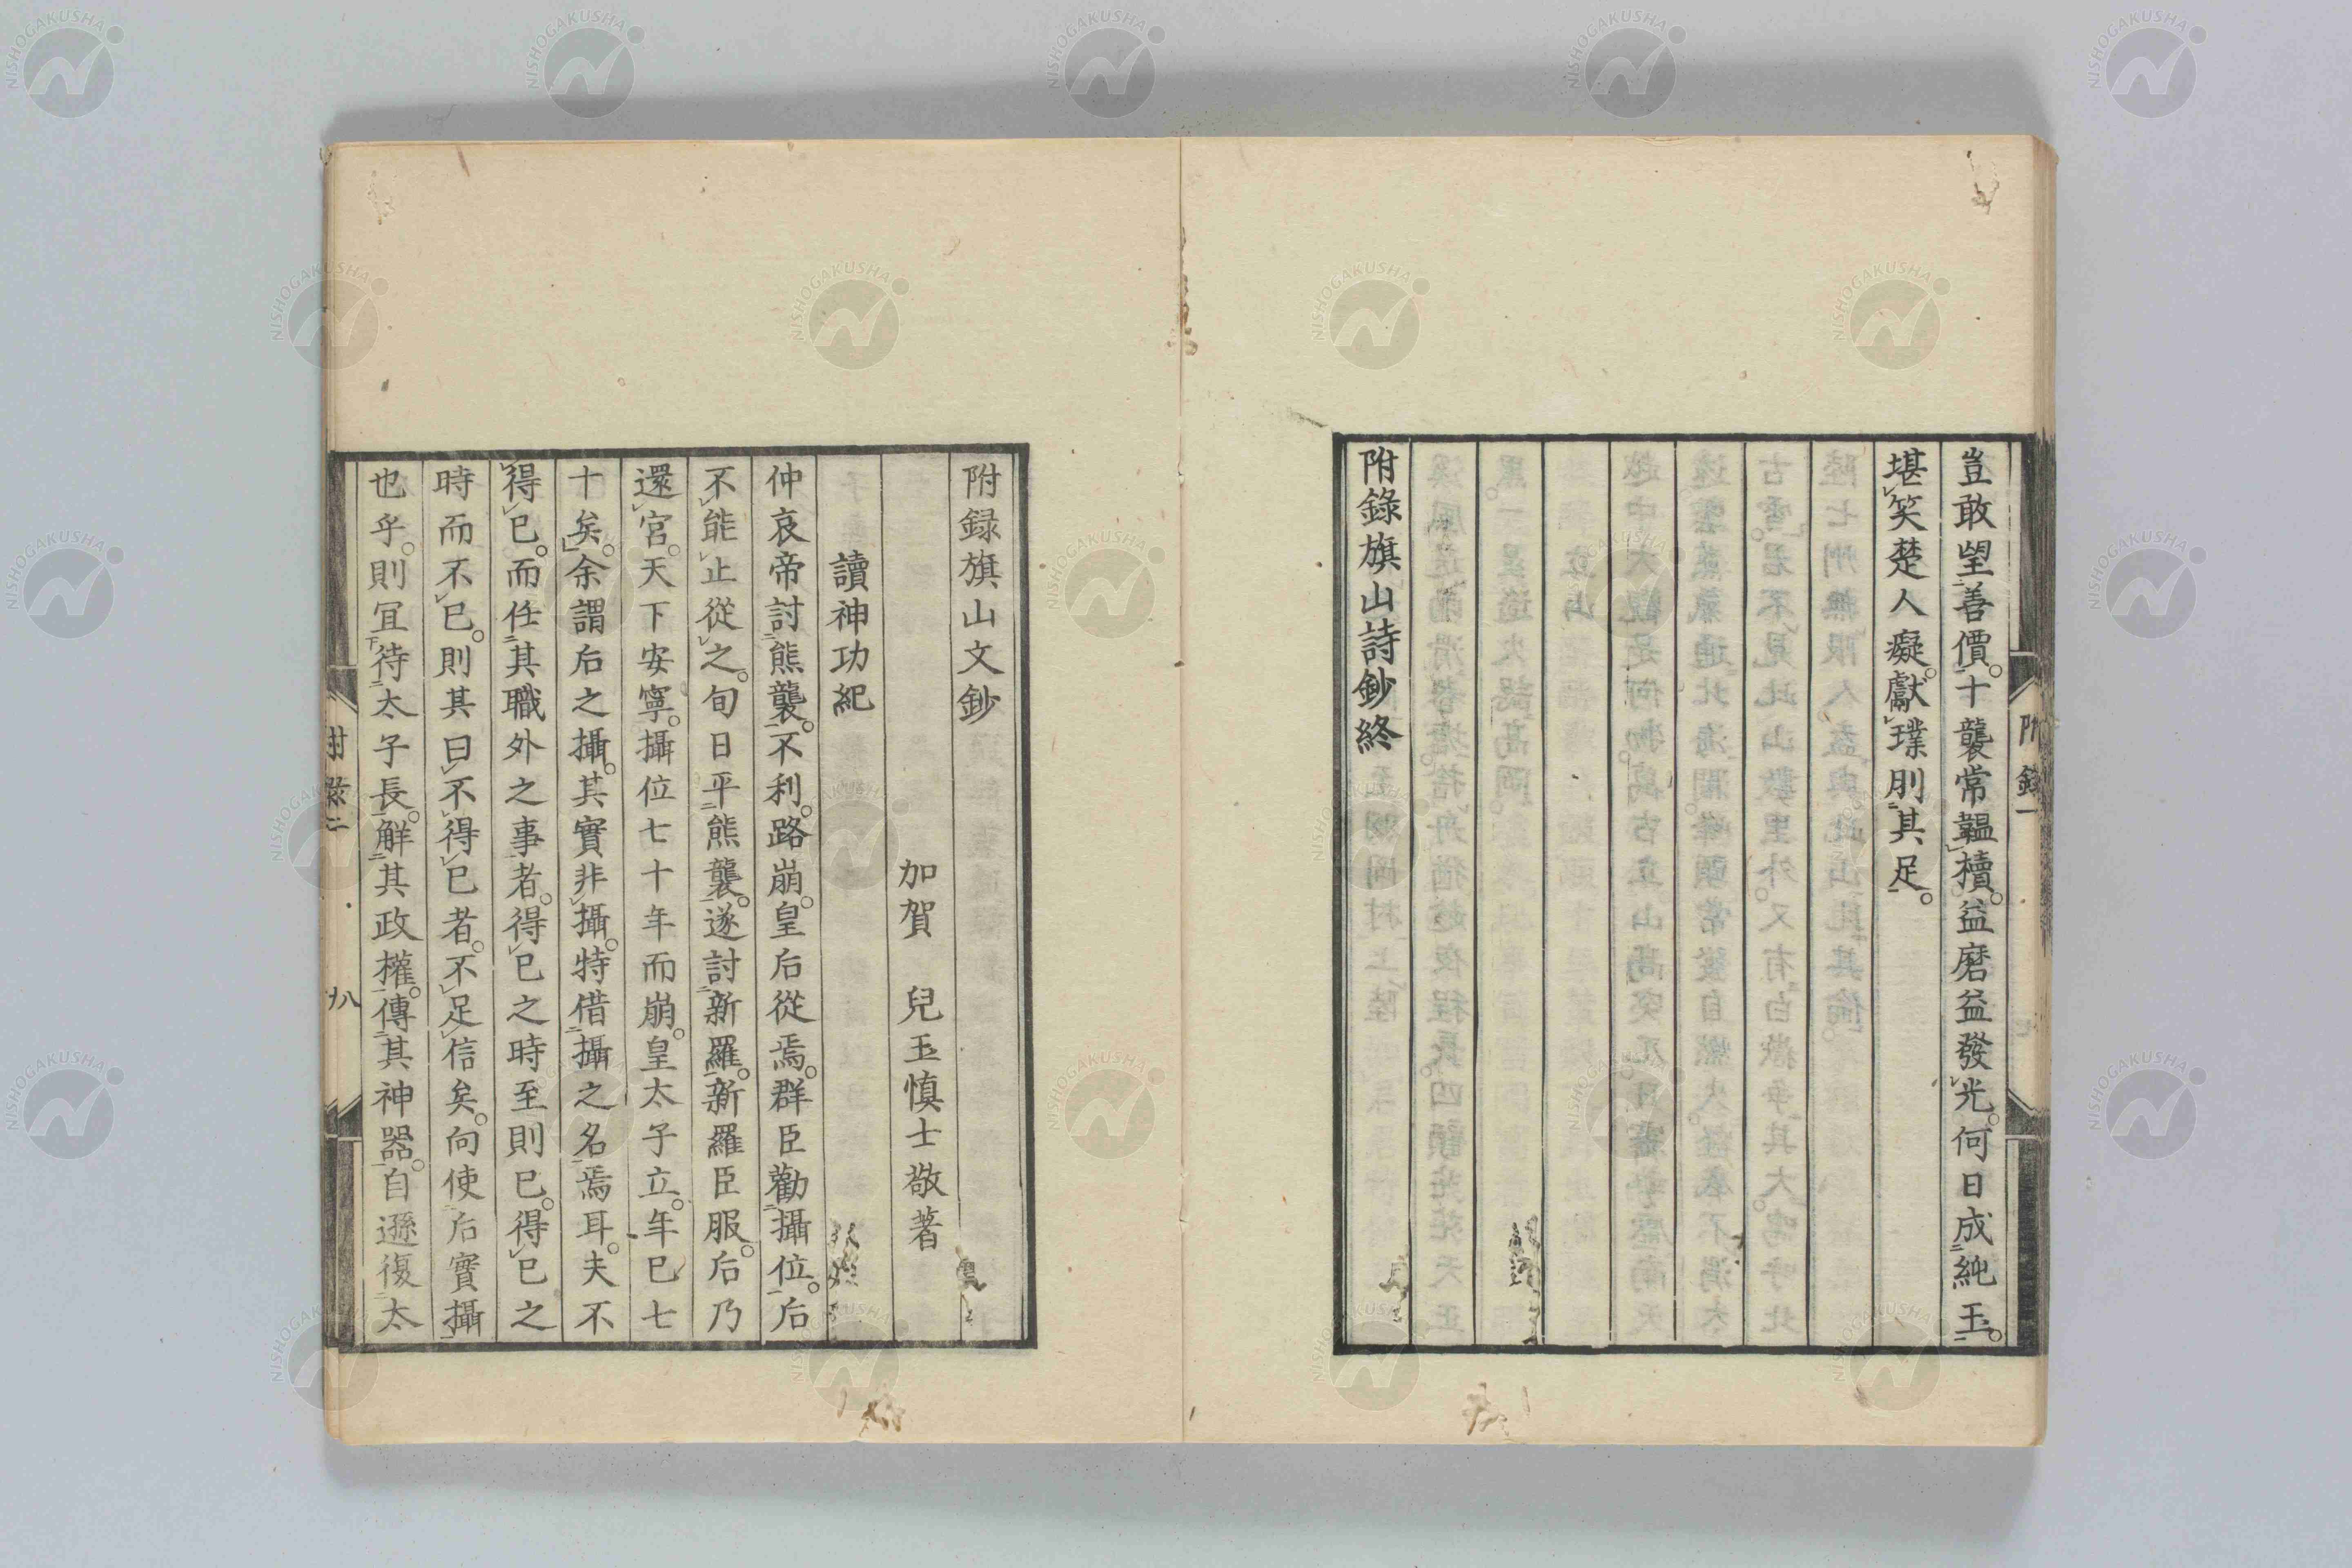 豈敢望善價。十襲常韞櫝。益磨益發光。何日成純玉。
堪笑楚人癡。獻璞刖其足。
附錄旗山詩鈔終
附録一
附録旗山文鈔
加賀 兒玉慎士敬著
讀神功紀
仲哀帝討熊襲。不利。路崩。皇后從焉。群臣勸攝位。后
不能止從之。旬日平熊襲。遂討新羅。新羅臣服。后乃
還宮。天下安寧。攝位七十年而崩。皇太子立。年已七
十矣。余謂后之攝。其實非攝。特借攝之名焉耳。夫不
得已。而任其職外之事者。得已之時至則已。得已之
時而不已。則其曰不得已者。不足信矣。向使后實攝
也乎。則宜待太子長。解其政權。傳其神器。自遜復太
附録二
八
NISHOGAKUSHA